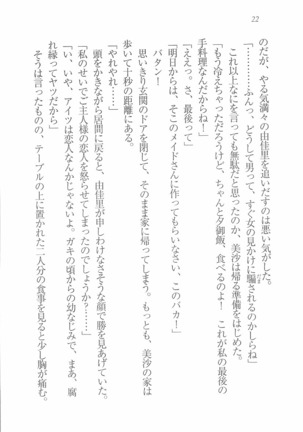 22
のだが、やる気満々の由佳里を追いだすのは悪い気がした。
「………ふんっ、どうして男って、すぐ女の見かけに騙されるのかしらね」
これ以上なにを言っても無駄だと思ったのか、美沙は帰る準備をはじめた。
「もう冷えちゃっただろうけど、ちゃんと夕御飯、食べるのよ！　これが私の最後の
手料理なんだからね！」
「ええっ、さ、最後って」
「明日からは、そこのメイドさんに作ってもらいなさい、このバカ！」
バタン！
思いきり玄関のドアを閉じて、そのまま家に帰ってしまう。もっとも、美沙の家は
歩いて十秒の距離にある。
「やれやれ……」
頭をかきながら居間に戻ると、由佳里が申しわけなさそうな顔で勝を見あげていた。
「私のせいでご主人様の恋人を怒らせてしまったのでしょうか？………」
「い、いや、アイツは恋人なんかじゃないよ。ガキの頃からの幼なじみで、まあ、腐
れ縁ってヤツだから」
そうは言ったものの、テーブルの上に置かれた二人分の食事を見ると少し胸が痛む。